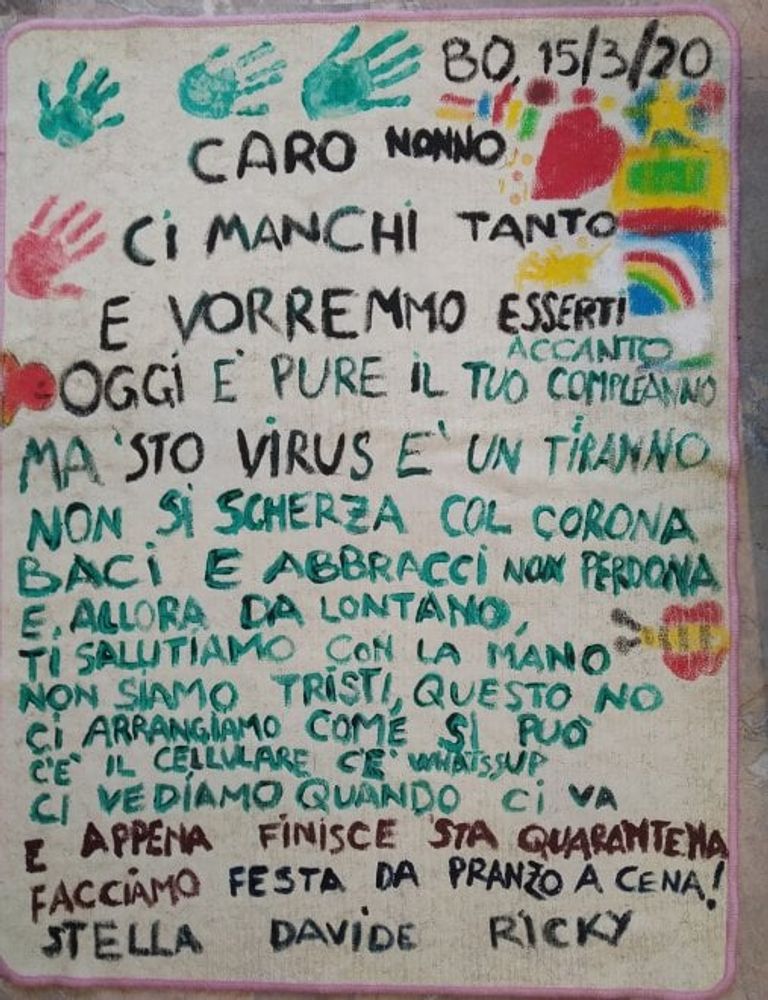 BO, 15/3/20
CARO NONNO
CI MANCHI TANTO
E VORREMMO ESSERTI
ACCANTO
OGGI E' PURE IL TUO COMPLEANNO
MA 'STO VIRUS E' UN TIRANNO
NON SI SCHERZA COL CORONA
BACI E ABBRACCI NON PERDONA
E, ALLORA DA LONTANO,
TI SALUTIAMO CON LA MANO
NON SIAMO TRISTI, QUESTO NO
CI ARRANGIAMO COME SI PUÒ
C'E' IL CELLULARE C'E' WHATSSUP
CI VEDIAMO QUANDO CI VA
E APPENA FINISCE 'STA QUARANTENA
FACCIAMO FESTA DA PRANZO A CENA!
STELLA DAVIDE RICKY